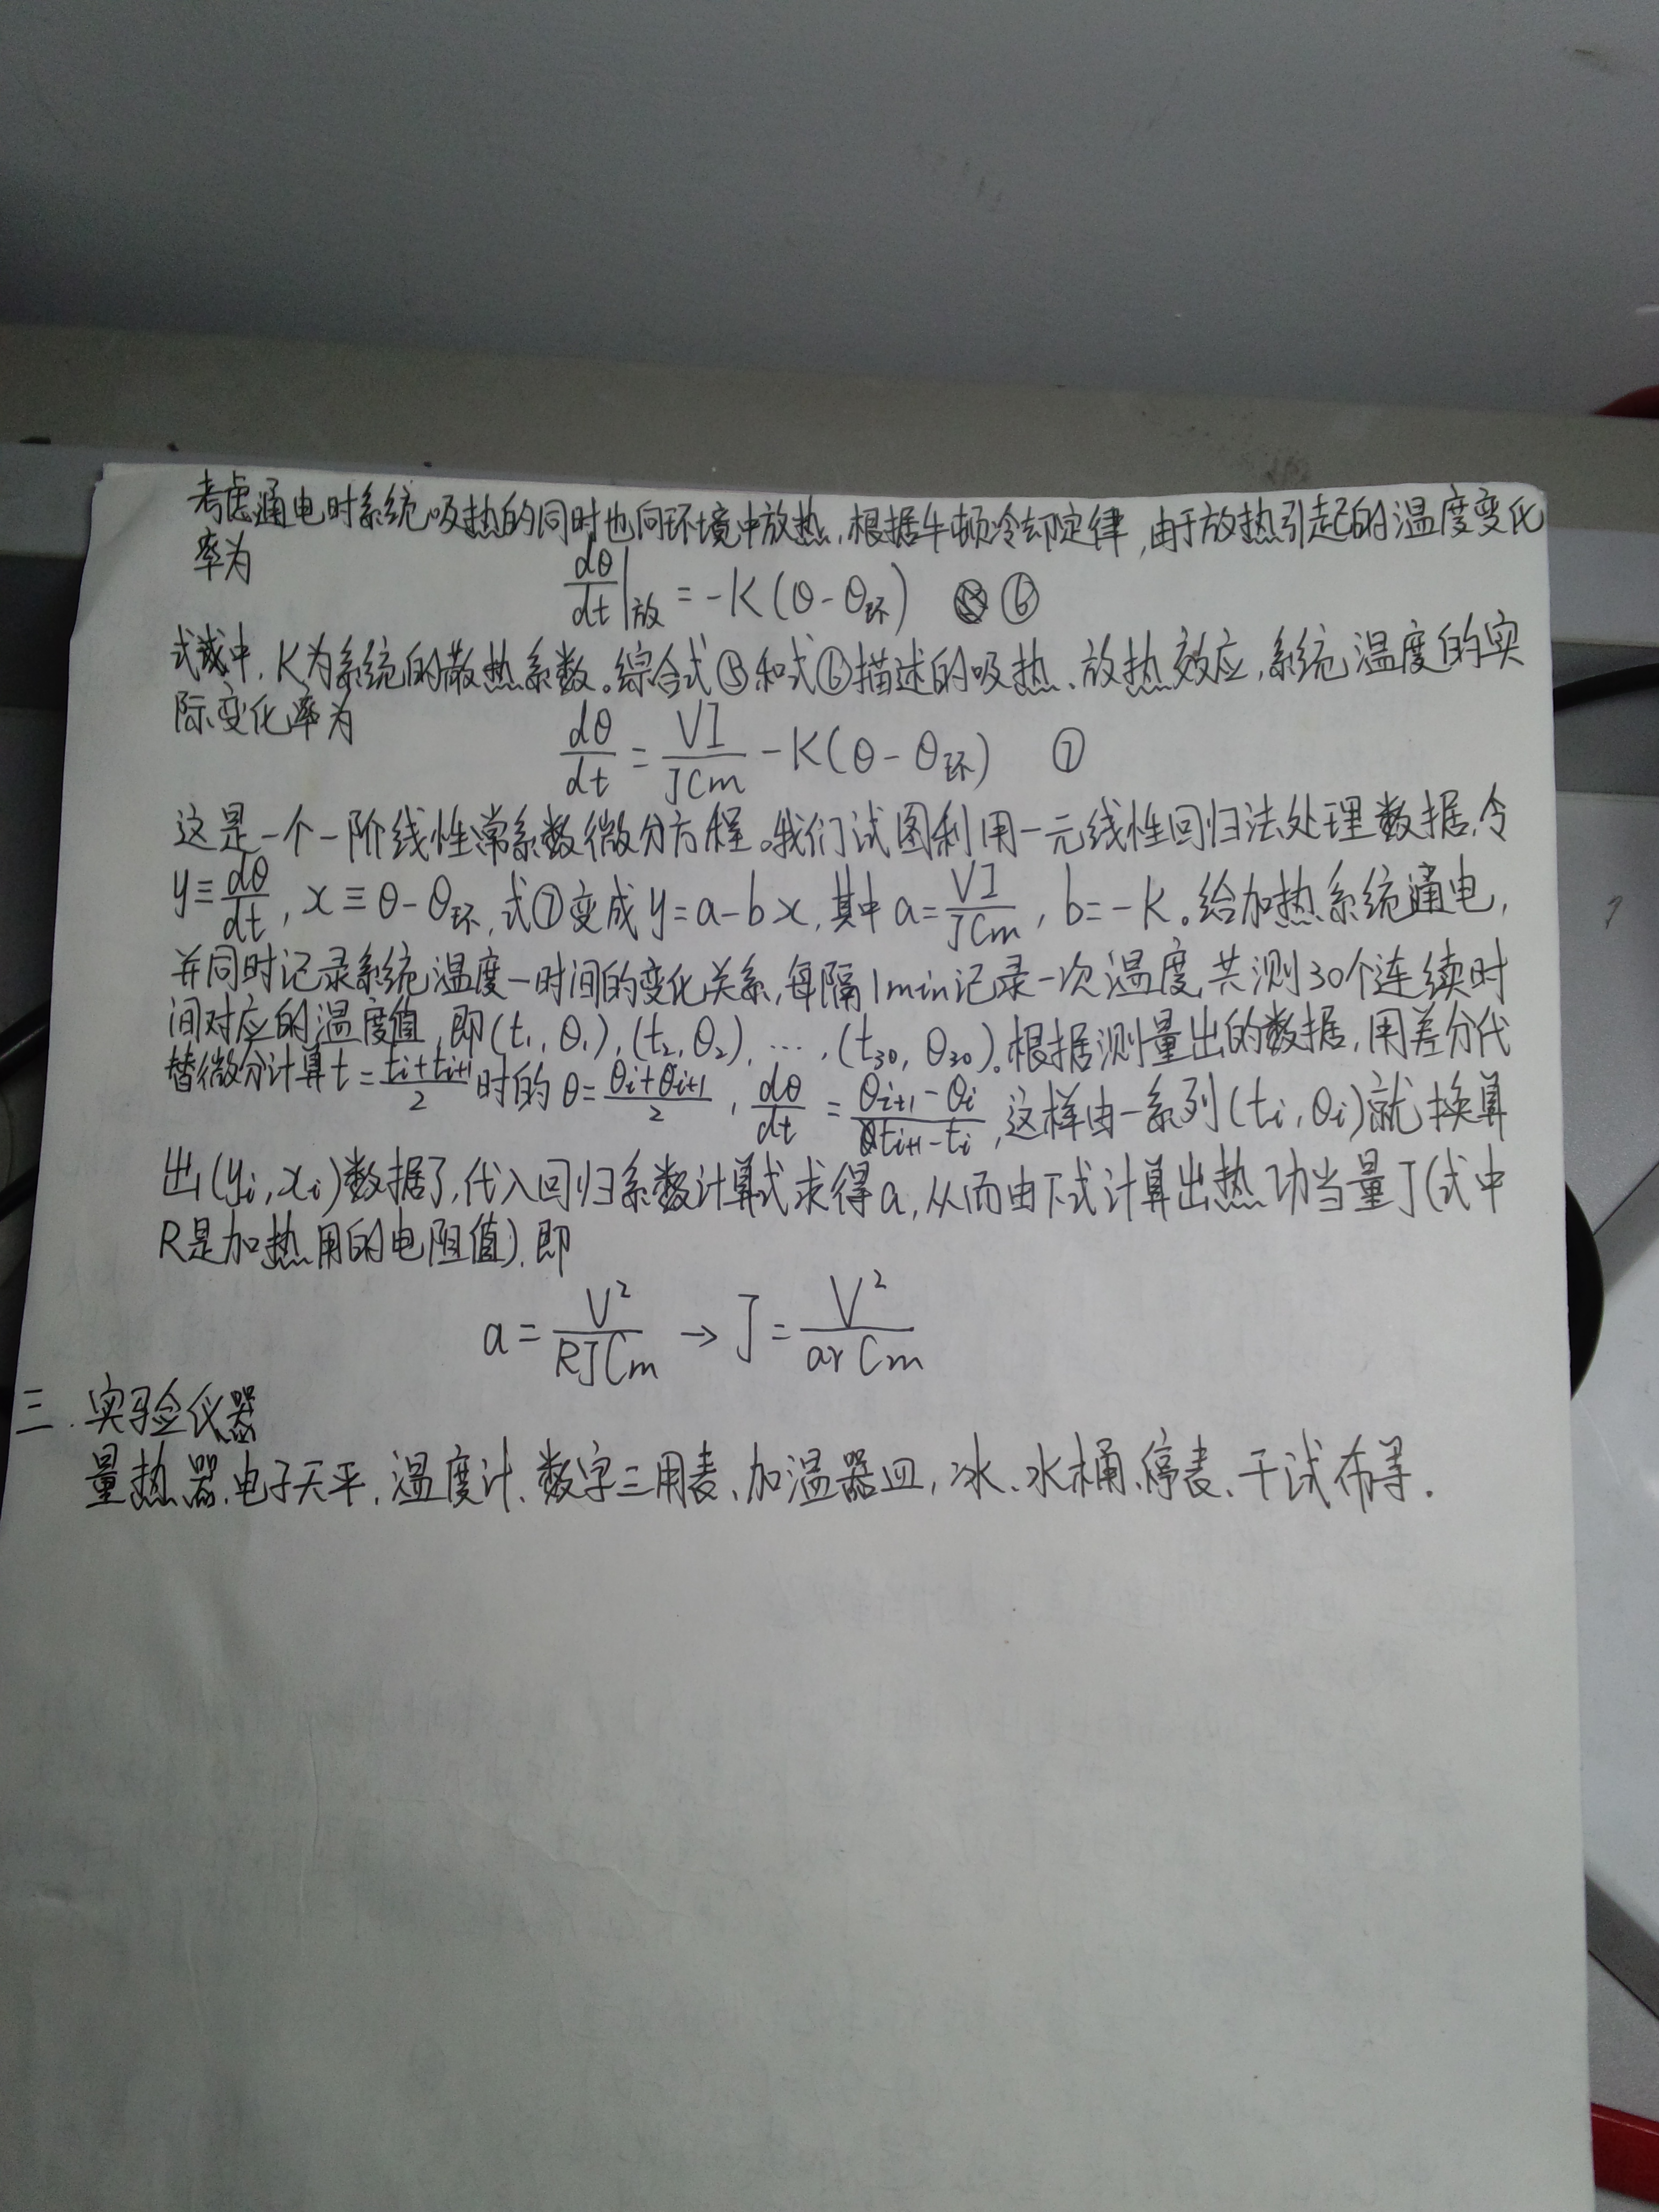 考虑通电时系统吸热的同时也向环境中放热,根据牛顿冷却定律,由于放热引起的温度变化
率为
dθ/dt|放 = -K(θ-θ环) ⑥
式中,K为系统的散热系数。综合式⑤和式⑥描述的吸热、放热效应,系统温度的实
际变化率为
dθ/dt = VI/JCm - K(θ-θ环) ⑦
这是一个一阶线性常系数微分方程。我们试图利用一元线性回归法处理数据,令
y≡dθ/dt, x≡θ-θ环,式⑦变成y=a-bx,其中a=VI/JCm, b=-K。给加热系统通电,
并同时记录系统温度—时间的变化关系,每隔1min记录一次温度,共测30个连续时
间对应的温度值,即(t₁,θ₁),(t₂,θ₂),…,(t₃₀,θ₃₀)。根据测量出的数据,用差分代
替微分计算t=(tᵢ+tᵢ₊₁)/2时的θ=(θᵢ+θᵢ₊₁)/2, dθ/dt=(θᵢ₊₁-θᵢ)/(tᵢ₊₁-tᵢ),这样由一系列(tᵢ,θᵢ)就换算
出(yᵢ,xᵢ)数据了,代入回归系数计算式求得a,从而由下式计算出热功当量J(式中
R是加热用的电阻值),即
a=V²/RJCm → J=V²/arCm
三.实验仪器
量热器、电子天平、温度计、数字三用表、加温器皿,冰、水桶、停表、干试布等.